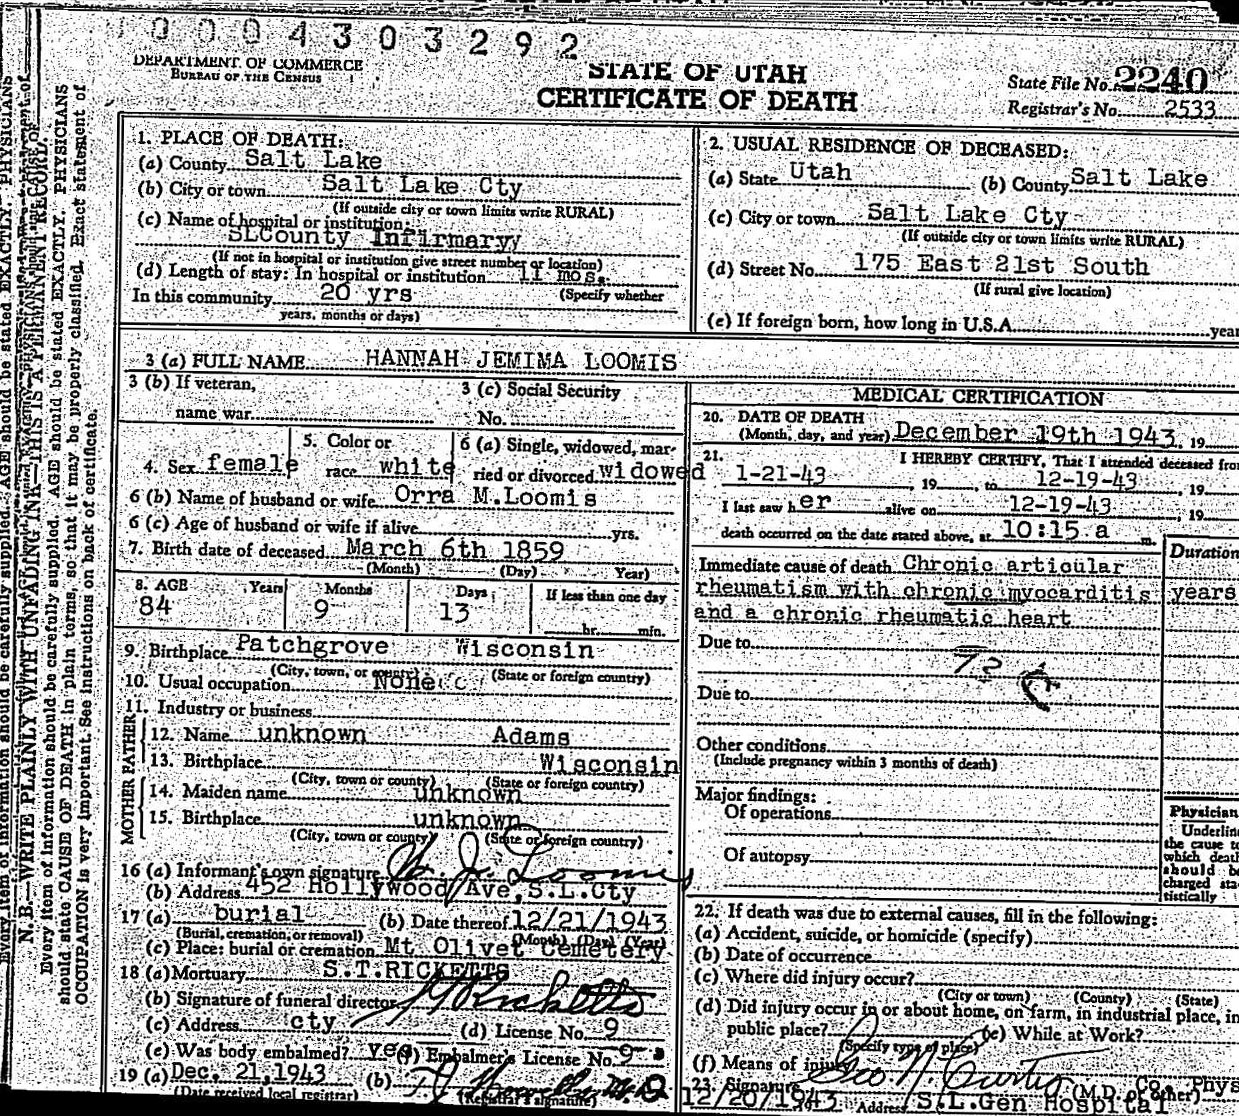 0004303292
DEPARTMENT OF COMMERCE
BUREAU OF THE CENSUS
STATE OF UTAH
CERTIFICATE OF DEATH
State File No. 2240
Registrar's No. 2533
1. PLACE OF DEATH:
(a) County Salt Lake
(b) City or town Salt Lake Cty
(If outside city or town limits write RURAL)
(c) Name of hospital or institution:
SLCounty Infirmaryy
(If not in hospital or institution give street number or location)
(d) Length of stay: In hospital or institution 11 mos.
In this community 20 yrs (Specify whether
years, months or days)
2. USUAL RESIDENCE OF DECEASED:
(a) State Utah (b) County Salt Lake
(c) City or town Salt Lake Cty
(If outside city or town limits write RURAL)
(d) Street No. 175 East 21st South
(If rural give location)
(e) If foreign born, how long in U.S.A. year
3 (a) FULL NAME HANNAH JEMIMA LOOMIS
3 (b) If veteran,
name war
3 (c) Social Security
No.
4. Sex female
5. Color or
race white
6 (a) Single, widowed, mar-
ried or divorced widowed
6 (b) Name of husband or wife Orra M.Loomis
6 (c) Age of husband or wife if alive yrs.
7. Birth date of deceased March 6th 1859
(Month) (Day) Year)
8. AGE Years Months Days If less than one day
84 9 13
hr. min.
9. Birthplace Patchgrove Wisconsin
(City, town, or county) (State or foreign country)
10. Usual occupation None
11. Industry or business
FATHER
12. Name unknown Adams
13. Birthplace Wisconsin
(City, town or county) (State or foreign country)
MOTHER
14. Maiden name unknown
15. Birthplace unknown
(City, town or county) (State or foreign country)
16 (a) Informant's own signature W. J. Loomis
(b) Address 452 Hollywood Ave,S.L.Cty
17 (a) burial (b) Date thereof 12/21/1943
(Burial, cremation, or removal) (Month) (Day) (Year)
(c) Place: burial or cremation Mt. Olivet Cemetery
18 (a) Mortuary S.T.RICKETTS
(b) Signature of funeral director Ricketts
(c) Address cty (d) License No. 9
(e) Was body embalmed? yes (f) Embalmer's License No. 9
19 (a) Dec. 21,1943 (b) M.D.
(Date received local registrar) (Registrar's signature)
MEDICAL CERTIFICATION
20. DATE OF DEATH
(Month, day, and year) December 19th 1943, 19
21. I HEREBY CERTIFY, That I attended deceased from
1-21-43, 19, to 12-19-43, 19
I last saw her alive on 12-19-43, 19
death occurred on the date stated above, at 10:15 a m.
Duration
Immediate cause of death Chronic articular
rheumatism with chronic myocarditis years
and a chronic rheumatic heart
Due to
Due to
Other conditions
(Include pregnancy within 3 months of death)
Major findings:
Of operations
Of autopsy
Physician
Underline
the cause to
which death
should be
charged sta-
tistically
22. If death was due to external causes, fill in the following:
(a) Accident, suicide, or homicide (specify)
(b) Date of occurrence
(c) Where did injury occur?
(City or town) (County) (State)
(d) Did injury occur in or about home, on farm, in industrial place, in
public place? (e) While at Work?
(Specify type of place)
(f) Means of injury
23. Signature Geo N. Curtis (M.D. or other) Co. Phys
12/20/1943 Address S.L.Gen Hospital
N. B.—WRITE PLAINLY WITH UNFADING INK—THIS IS A PERMANENT RECORD.
Every item of information should be carefully supplied. AGE should be stated EXACTLY. PHYSICIANS
should state CAUSE OF DEATH in plain terms, so that it may be properly classified. Exact statement of
OCCUPATION is very important. See instructions on back of certificate.